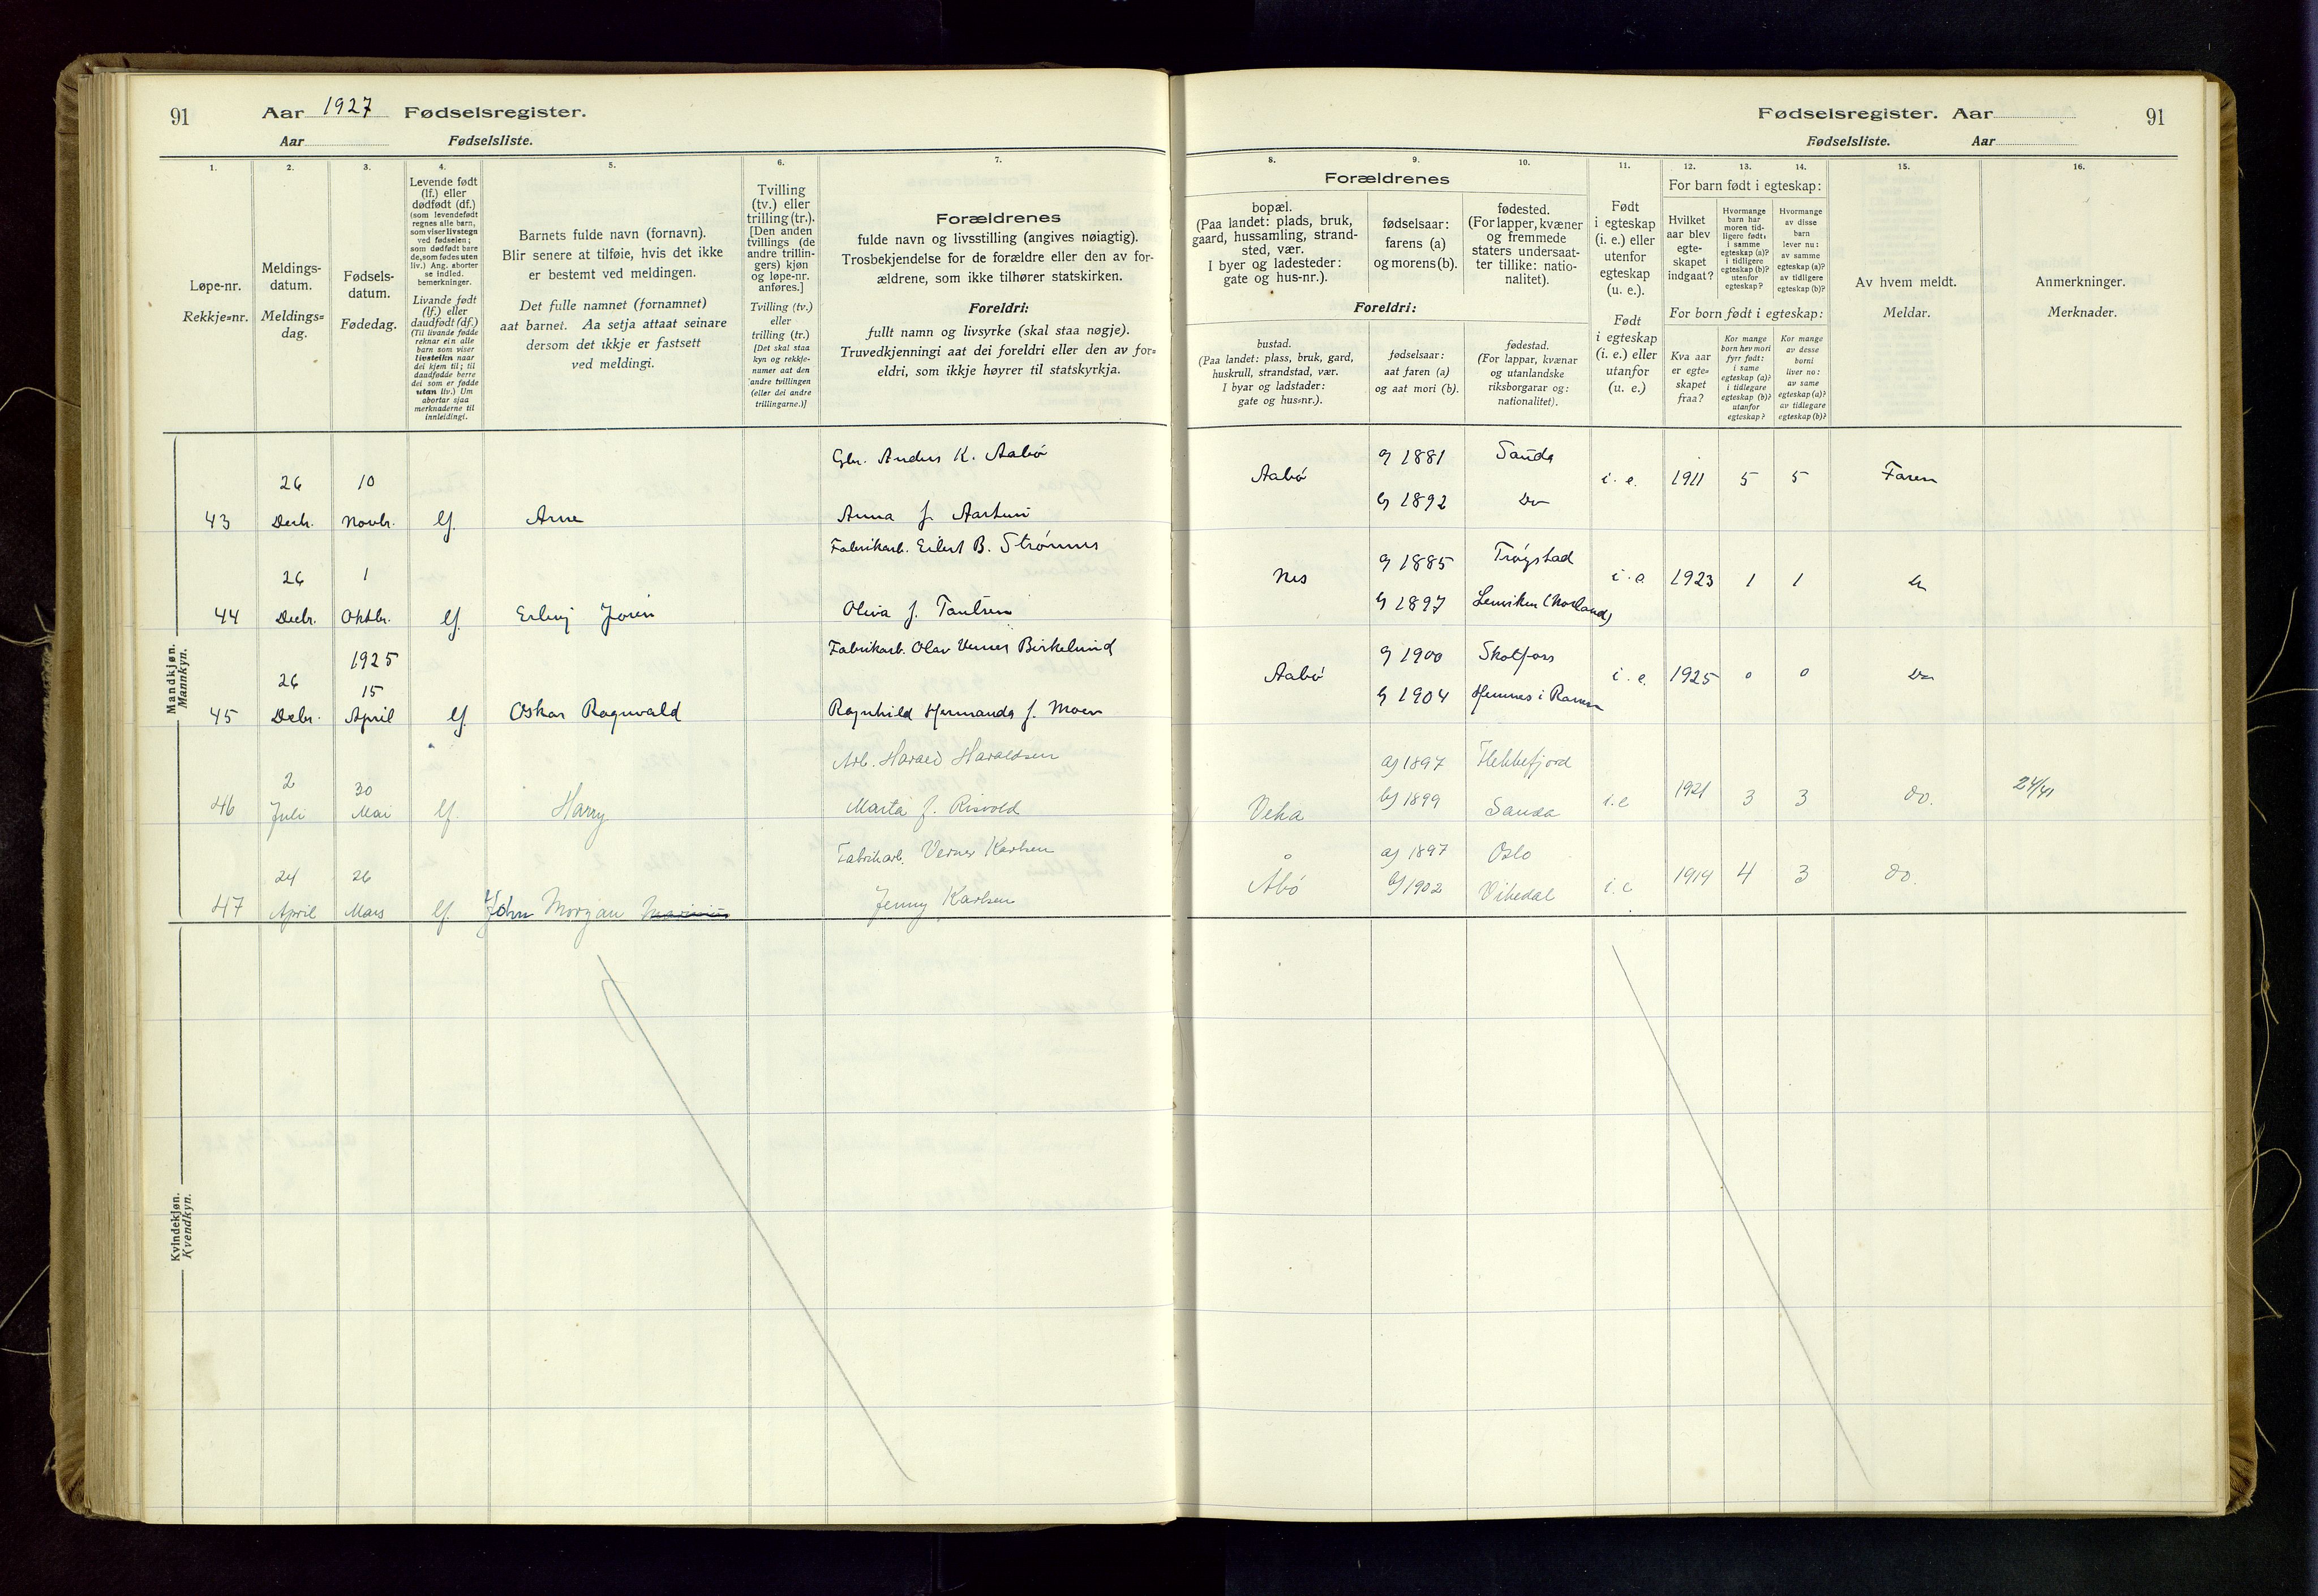 91
Aar 1927 Fødselsregister.
Aar Fødselsliste.
Fødselsregister. Aar
91
Fødselsliste. Aar
1. 2. 3. 4. 5. 6. 7.
8. 9. 10. 11. 12. 13. 14. 15. 16.
Løpe-nr.
Rekkje=nr.
Meldings-
datum.
Meldings=
dag.
Fødsels-
datum.
Fødedag.
Levende født
(lf.) eller
dødfødt (df.)
(som levendefødt
regnes alle barn,
som viser livstegn
ved fødselen;
som dødfødt bare
de, som fødes uten
liv.) Ang. aborter
se indled.
bemerkninger.
Livande født
(lf.) eller
daudfødt (df.)
(Til livande fødde
reknar ein alle
barn som viser
livsteikn naar
dei kjem til; til
daudfødde berre
dei som er fødde
utan liv.) Um
abortar sjaa
merknaderne til
innleidingi.
Barnets fulde navn (fornavn).
Blir senere at tilføie, hvis det ikke
er bestemt ved meldingen.
Det fulle namnet (fornamnet)
aat barnet. Aa setja attaat seinare
dersom det ikkje er fastsett
ved meldingi.
Tvilling
(tv.) eller
trilling (tr.).
[Den anden
tvillings (de
andre trillin-
gers) kjøn
og løpe-nr.
anføres.]
Tvilling (tv.)
eller
trilling (tr.)
[Det skal staa
kyn og rekkje-
numer aat den
andre tvillingen
(eller dei andre
trillingarne.)]
Forældrenes
fulde navn og livsstilling (angives nøiagtig).
Trosbekjendelse for de forældre eller den av for-
ældrene, som ikke tilhører statskirken.
Foreldri:
fullt namn og livsyrke (skal staa nøgje).
Truvedkjenningi aat dei foreldri eller den av for=
eldri, som ikkje høyrer til statskyrkja.
Forældrenes
bopæl.
(Paa landet: plads, bruk,
gaard, hussamling, strand-
sted, vær.
I byer og ladesteder:
gate og hus-nr.).
fødselsaar:
farens (a)
og morens (b).
fødested.
(For lapper, kvæner
og fremmede
staters undersaat-
ter tillike: natio-
nalitet).
Foreldri:
bustad.
(Paa landet: plass, bruk, gard,
huskrull, strandstad, vær.
I byar og ladstader:
gate og hus=nr.).
fødselsaar:
aat faren (a)
og aat mori (b).
fødestad.
(For lappar, kvænar
og utanlandske
riksborgarar og:
nationalitet).
Født
i egteskap
(i. e.) eller
utenfor
egteskap
(u. e.).
Født
i egteskap
(i. e.) eller
utanfor
(u. e.)
For barn født i egteskap:
Hvilket
aar blev
egte-
skapet
indgaat?
Hvormange
barn har
moren tid-
ligere født:
i samme
egteskap (a)?
i tidligere
egteskap (b)?
utenfor
egteskap?
Hvormange
av disse
barn
lever nu:
av samme
egteskap (a)?
av tidligere
egteskap (b)?
For born født i egteskap:
Kva aar
er egte=
skapet
fraa?
Kor mange
born hev mori
fyrr født:
i same
egteskap (a)?
i tidlegare
egteskap (b)?
utanfor
egteskap?
Kor mange
av desse
borni
liver no:
av same
egteskap (a)?
av tidlegare
egteskap (b)?
Av hvem meldt.
Meldar.
Anmerkninger.
Merknader.
Mandkjøn.
Mannkyn.
Gbr. Anders K. Aabø
26 10
43 Decbr. Novbr. lf. Arne Anna f. Aartun
Aabø a) 1881 Sauda i. e. 1911 5 5 Faren
b) 1892 Do
Fabrikarb. Eilert B. Strømnes
26 1
44 Decbr. Oktbr. lf. Erling Joren Oliva f. Paulsen
Nes a) 1885 Trøgstad i. e. 1923 1 1 Do
b) 1897 Lenviken (Nordland)
Fabrikarb. Olav Verner Birkelund
26 1925 15
45 Decbr. April lf. Oskar Ragnvald Ragnhild Hermanda f. Moen
Aabø a) 1900 Skotfoss i. e. 1925 0 0 Do
b) 1904 Hemnes i Ranen
Arb. Harald Haraldsen
2 30
46 Juli Mai lf. Harry Marta f. Risvold
Veka a) 1897 Flekkefjord i. e 1921 3 3 do. 24/41
b) 1899 Sauda
Fabrikarb. Verner Karlsen
24 26
47 April Mars lf. John Morgan Jenny Karlsen
Åbø a) 1897 Oslo i. e 1919 4 3 do.
b) 1902 Vikedal
Kvindekjøn.
Kvendkyn.